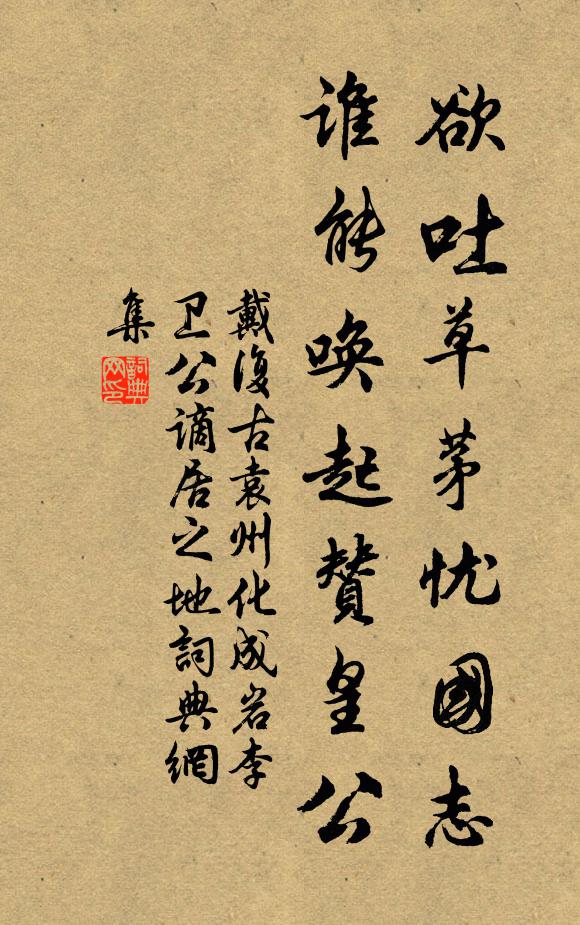 欲吐草茅忧國志
谁能唤起赞皇公
戴復古袁州化成岩李
卫公谪居之地詞典網
集
詞典
网印